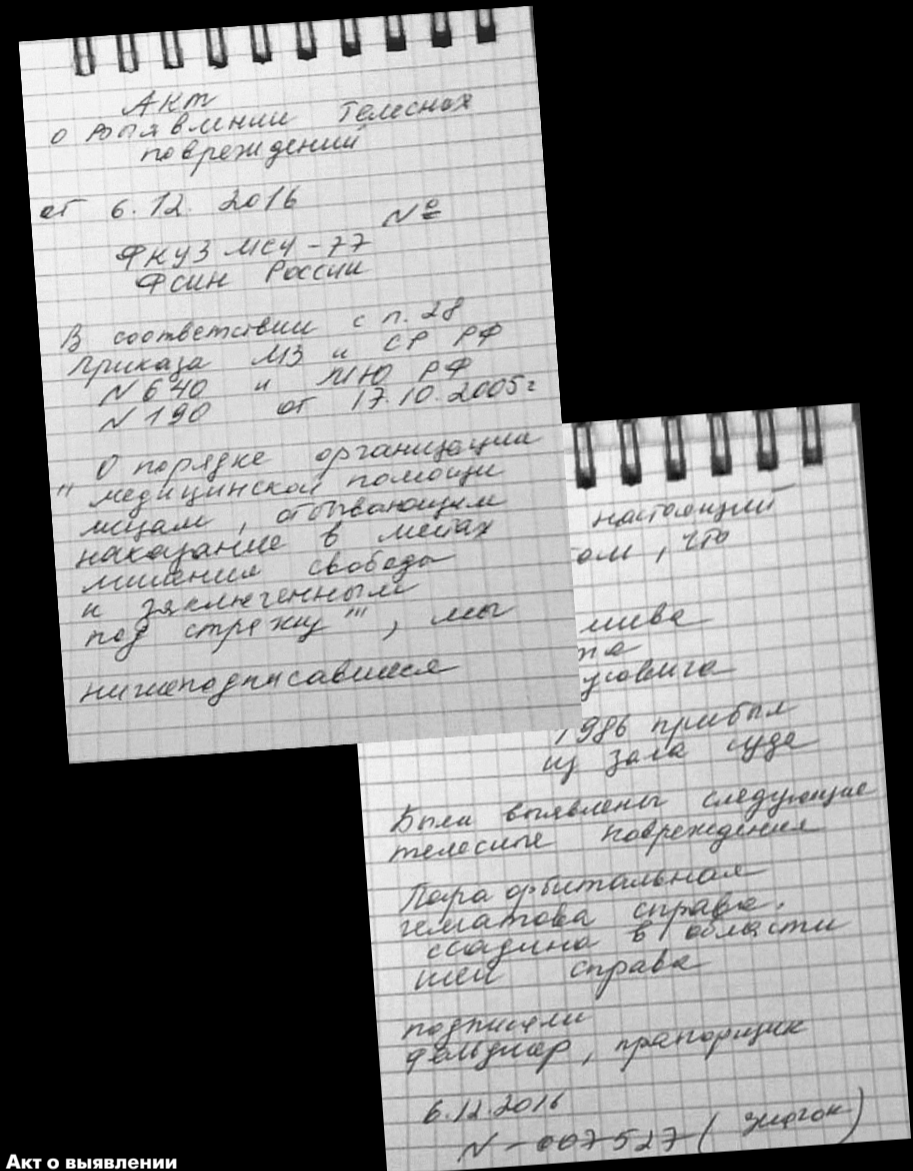 Акт
о выявлении телесных
повреждений
от 6.12.2016
№
ФКУЗ МСЧ-77
ФСИН России
В соответствии с п.28
Приказа МЗ и СР РФ
N 640 и МЮ РФ
N 190 от 17.10.2005г
О порядке организации
"медицинской помощи
лицам, отбывающим
наказание в местах
лишения свободы
и заключенным
под стражу", мы
нижеподписавшиеся
настоящий
ом, что
лива
та
уговича
1986 прибыл
из зала суда
Были выявлены следующие
телесные повреждения
Пара орбитальная
гематома справа,
ссадина в области
шеи справа
подписали
фельдшер, прапорщик
6.12.2016
N-007527 (жетон)
Акт о выявлении